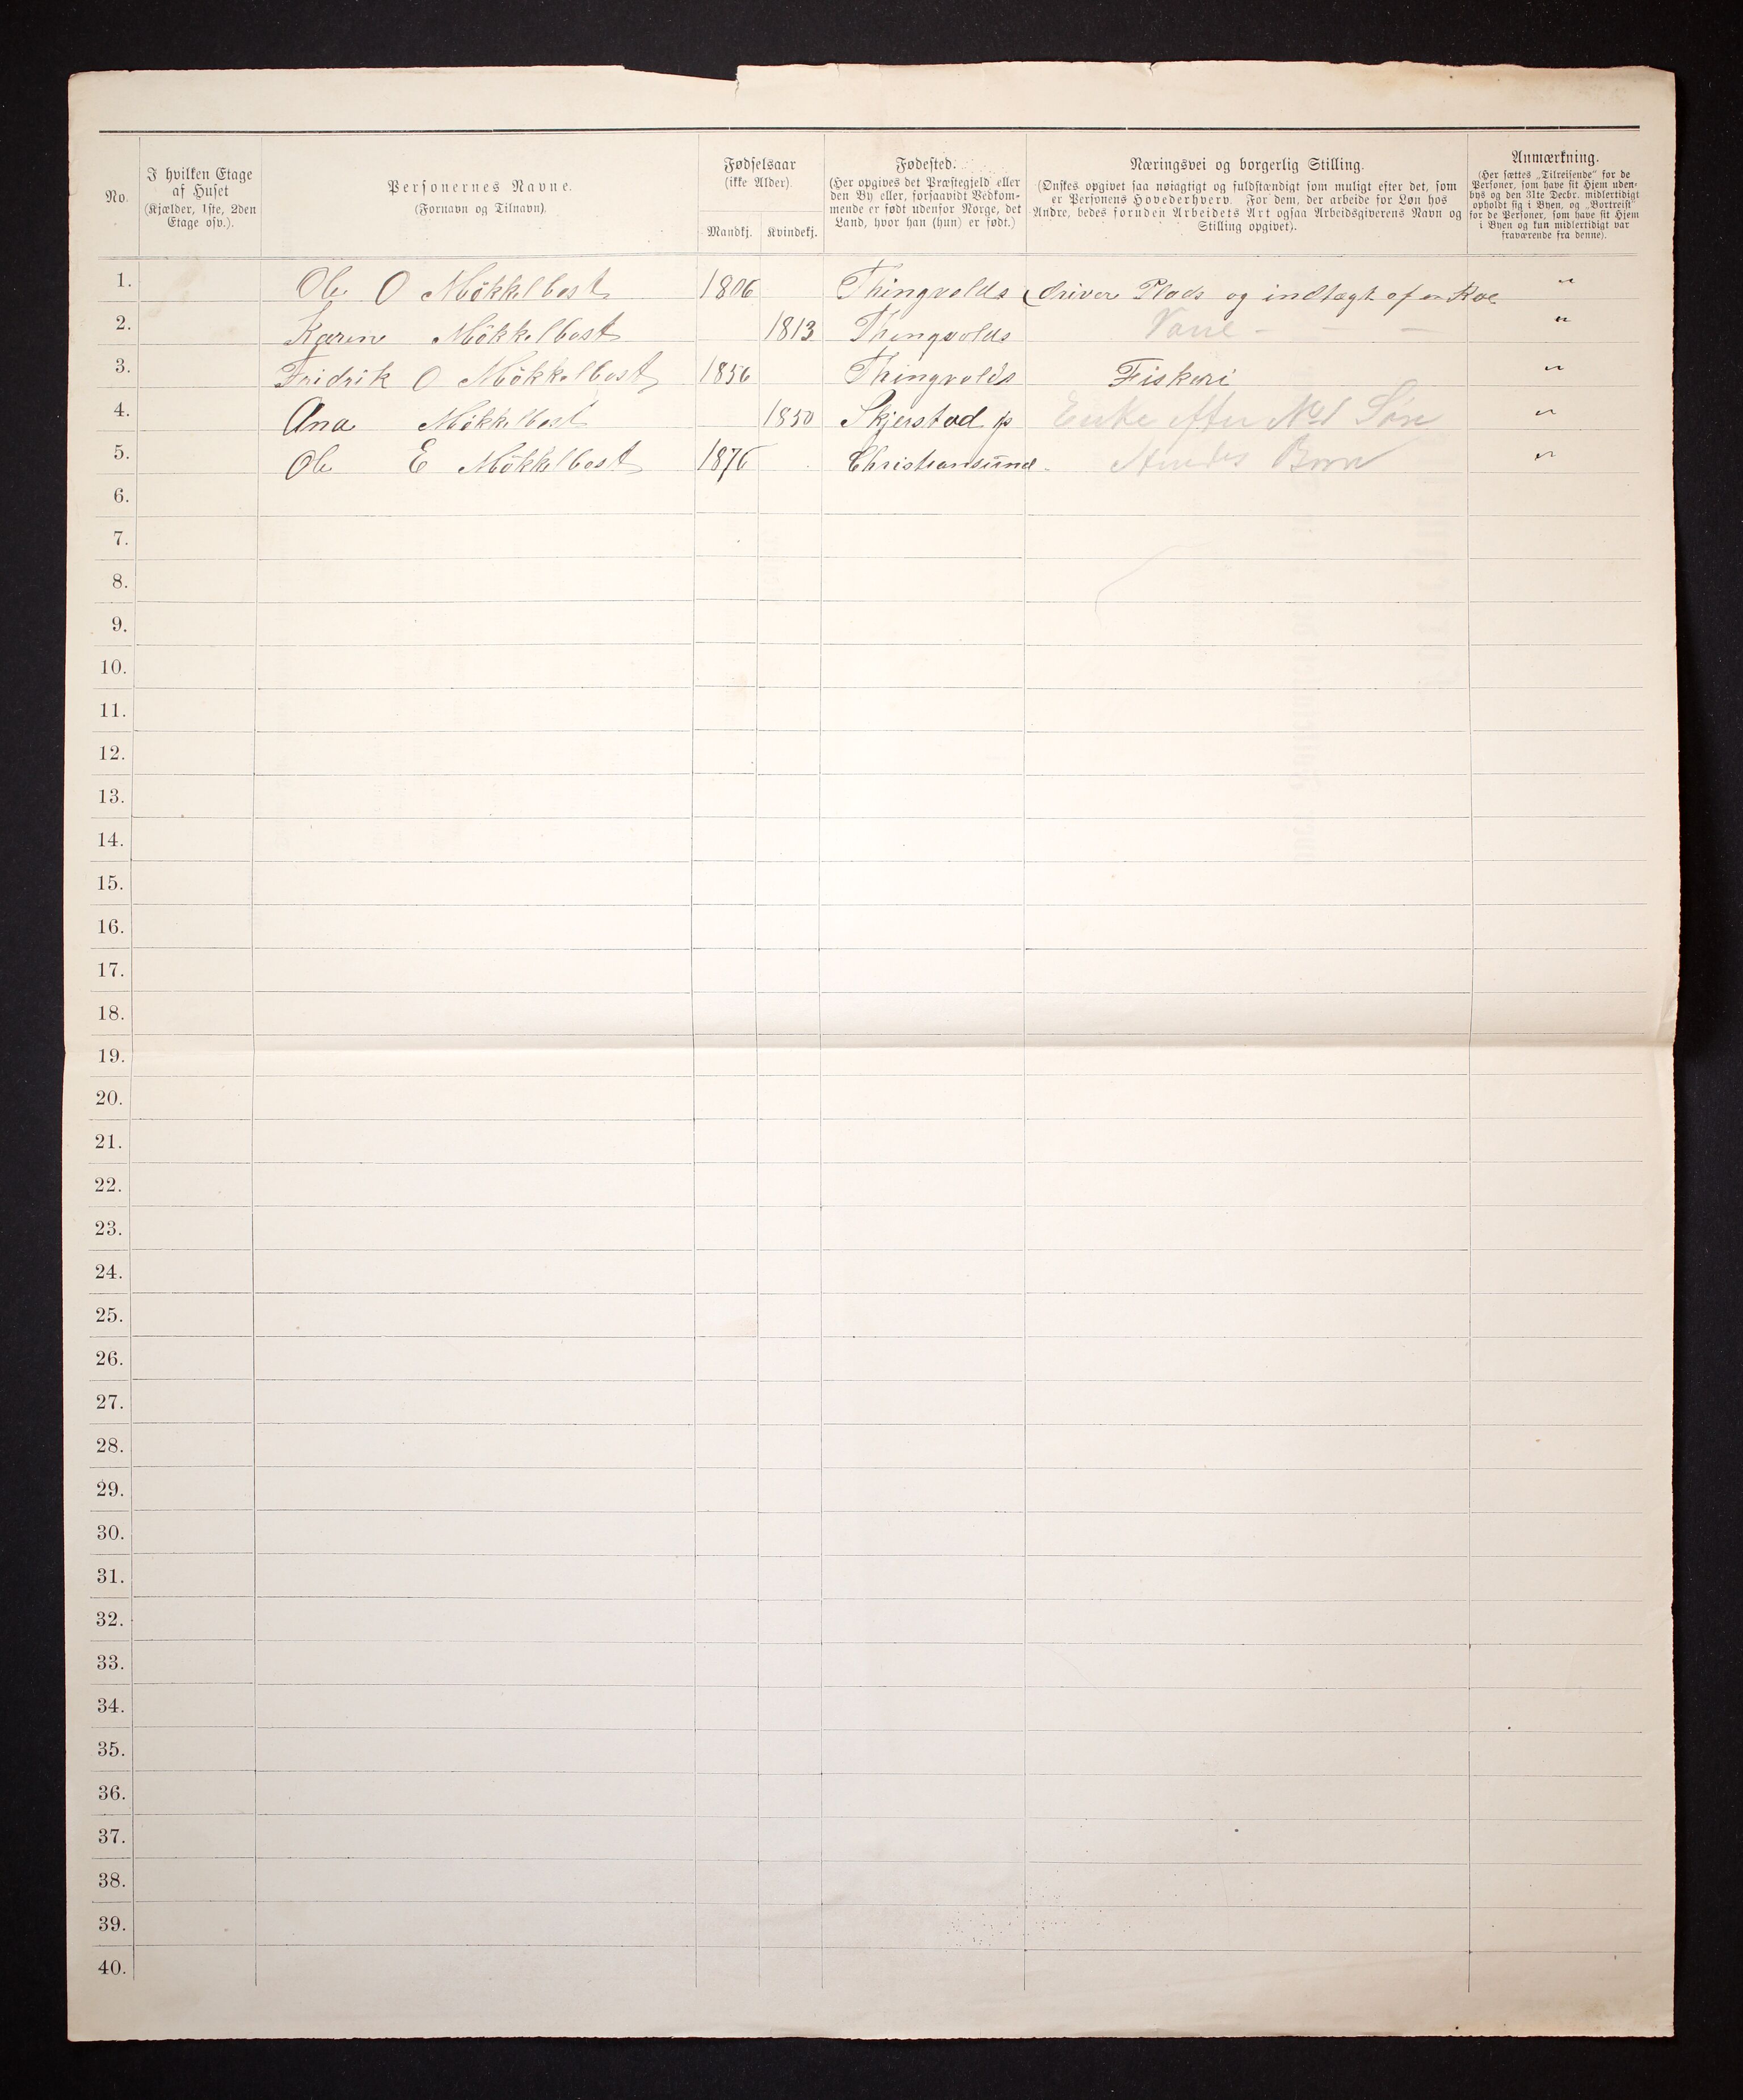 No.
I hvilken Etage
af Huset
(Kjælder, 1ste, 2den
Etage osv.).
Personernes Navne.
(Fornavn og Tilnavn).
Fødselsaar
(ikke Alder).
Mandkj. Kvindekj.
Fødested.
(Her opgives det Præstegjeld eller
den By eller, forsaavidt Vedkom-
mende er født udenfor Norge, det
Land, hvor han (hun) er født.)
Næringsvei og borgerlig Stilling.
(Ønskes opgivet saa nøiagtigt og fuldstændigt som muligt efter det, som
er Personens Hovederhverv. For dem, der arbeide for Løn hos
Andre, bedes foruden Arbeidets Art ogsaa Arbeidsgiverens Navn og
Stilling opgivet).
Anmærkning.
(Her sættes „Tilreisende" for de
Personer, som have sit Hjem uden-
bys og den 31te Decbr. midlertidigt
opholdt sig i Byen, og „Bortreist"
for de Personer, som have sit Hjem
i Byen og kun midlertidigt var
fraværende fra denne).
1. Ole O Mökkelbost 1806 Thingvolds driver Plads og indtægt af en Koe "
2. Karen Mökkelbost 1813 Thingvolds "
3. Fridrik O Mökkelbost 1856 Thingvolds Fiskeri "
4. Ana Mökkelbost 1850 Skjerstad p Enke efter No 1 Søn "
5. Ole E Mökkelbost 1876 Christiansund Barn "
6.
7.
8.
9.
10.
11.
12.
13.
14.
15.
16.
17.
18.
19.
20.
21.
22.
23.
24.
25.
26.
27.
28.
29.
30.
31.
32.
33.
34.
35.
36.
37.
38.
39.
40.